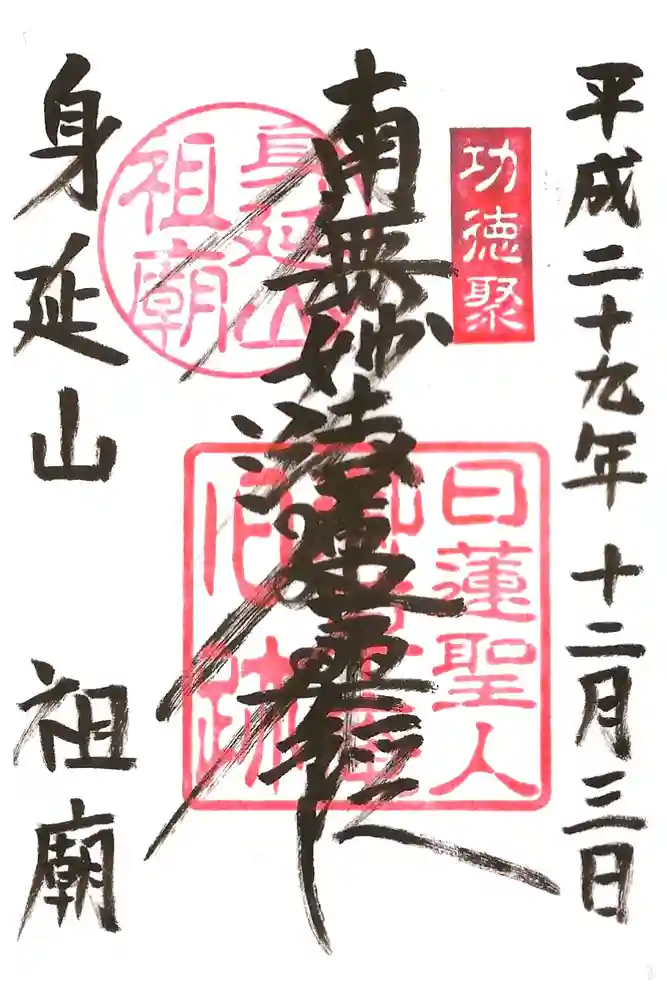 平成二十九年十二月三日
功徳聚
南無妙法蓮華経
身延山
祖廟
日蓮聖人
跡
身延山 祖廟